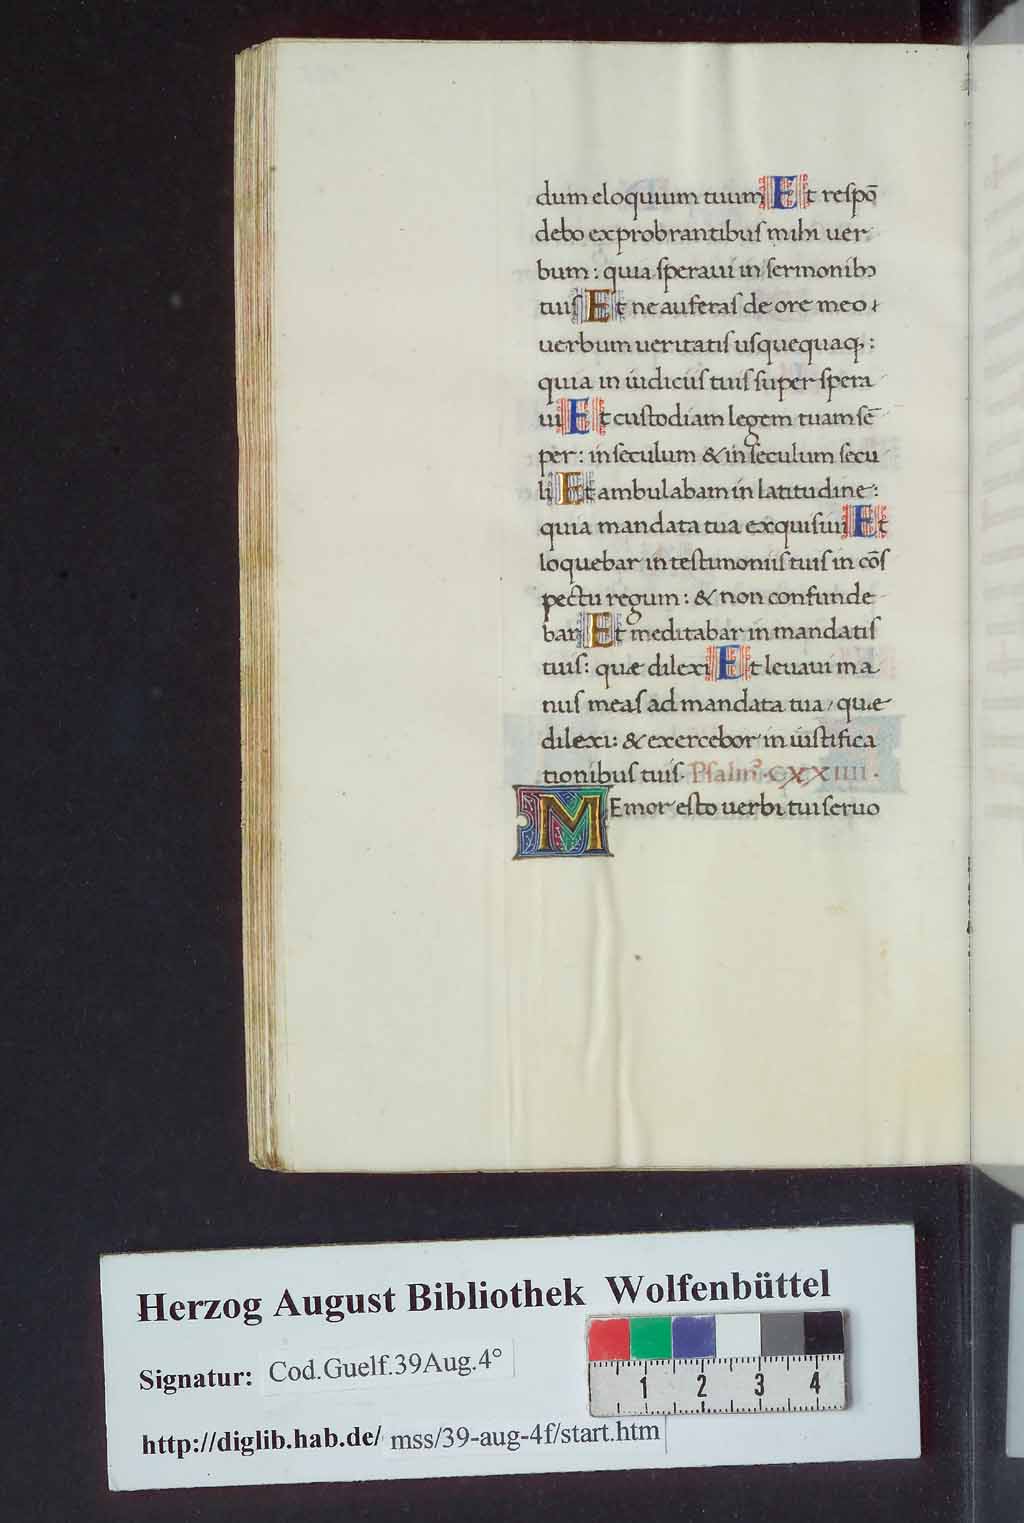 dum eloquium tuum Et respō
debo exprobrantibus mihi uer
bum: quia speraui in sermonibꝫ
tuis Et ne auferas de ore meo
uerbum ueritatis usquequaqꝫ:
quia in iudiciis tuis super spera
ui Et custodiam legem tuam sē
per: in seculum & in seculum secu
li Et ambulabam in latitudine:
quia mandata tua exquisiui Et
loquebar in testimoniis tuis in cōs
pectu regum: & non confunde
bar Et meditabar in mandatis
tuis: quæ dilexi Et leuaui ma
nus meas ad mandata tua, quæ
dilexi: & exercebor in iustifica
tionibus tuis. Psalmꝰ. CXXIIII.
MEmor esto uerbi tui seruo
Herzog August Bibliothek Wolfenbüttel
Signatur: Cod.Guelf.39Aug.4°
http://diglib.hab.de/ mss/39-aug-4f/start.htm
1 2 3 4